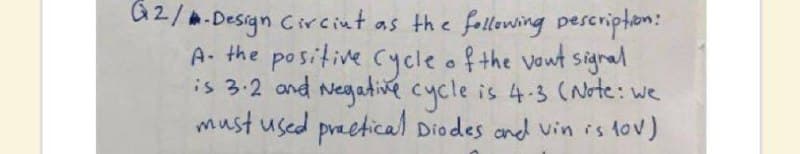 Q2/ A-Design Circiut as the following Description:
A- the positive cycle of the vout signal
is 3.2 and Negative cycle is 4.3 (Note: we
must used practical Diodes and vin is 10V)